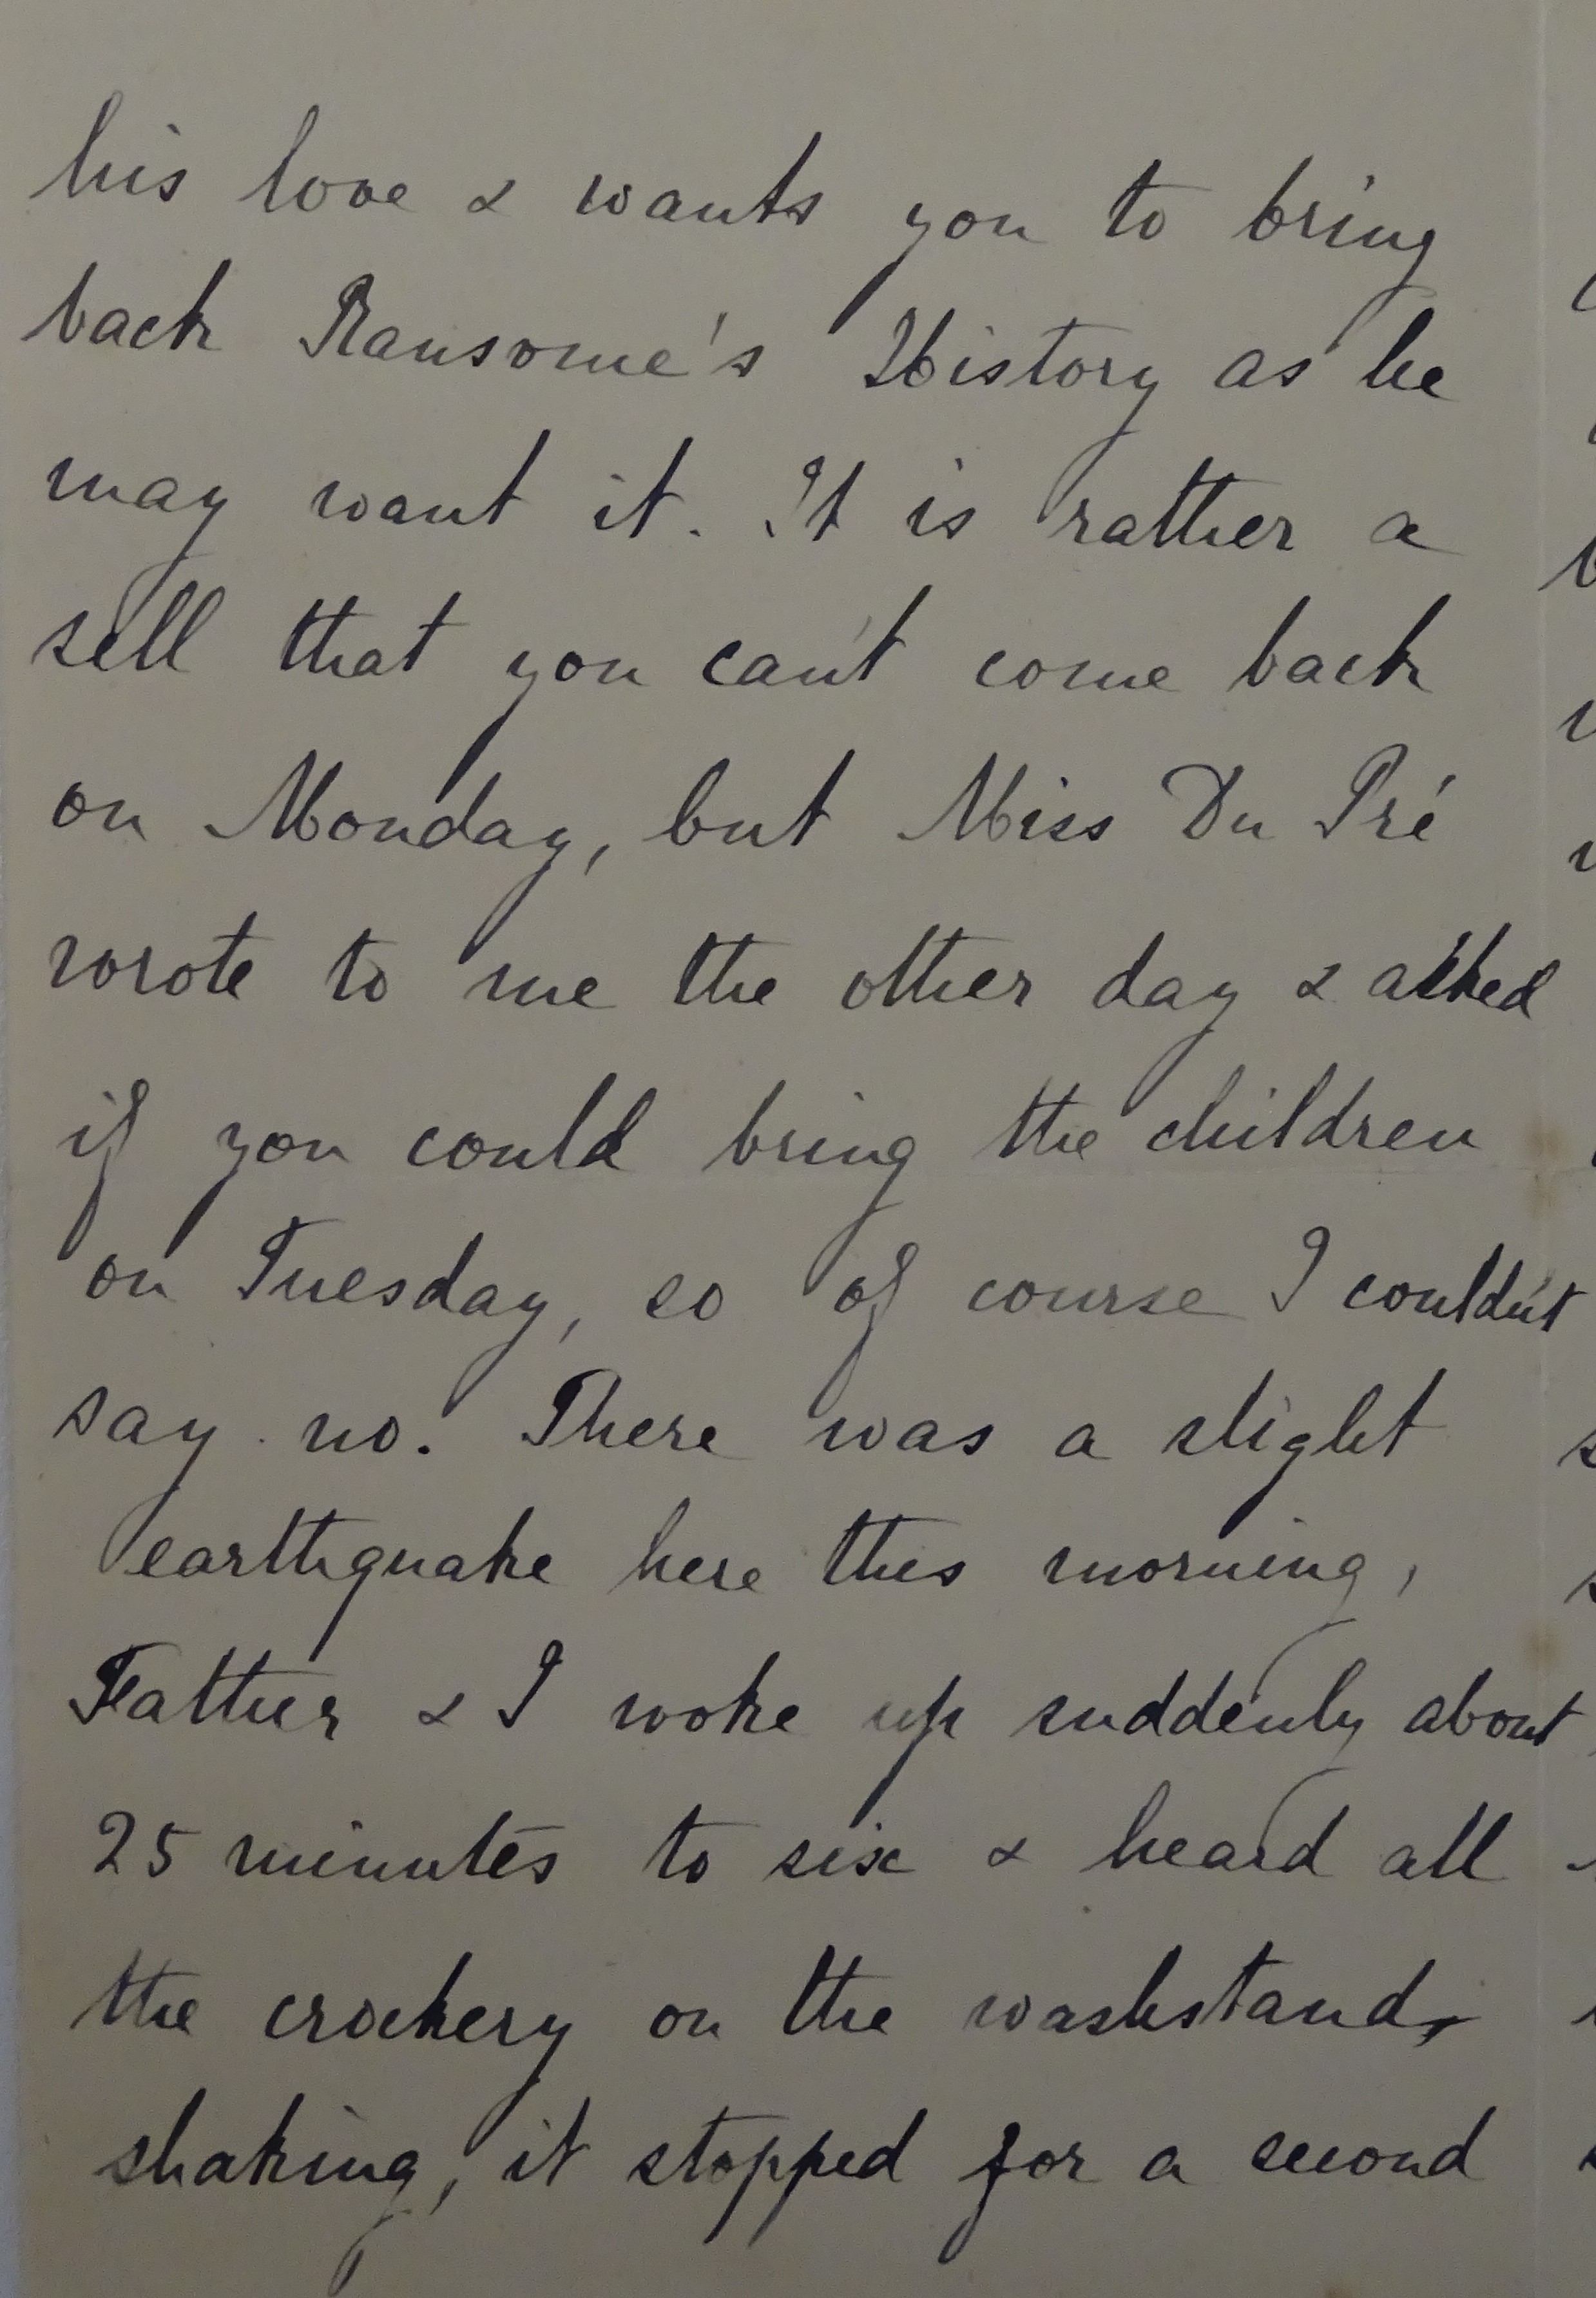 his love & wants you to bring
back Ransome's History as he
may want it. It is rather a
sell that you can't come back
on Monday, but Miss Du Pré
wrote to me the other day & asked
if you could bring the children
on Tuesday, so of course I couldn't
say no. There was a slight
earthquake here this morning,
Father & I woke up suddenly about
25 minutes to six & heard all
the crockery on the washstand
shaking, it stopped for a second